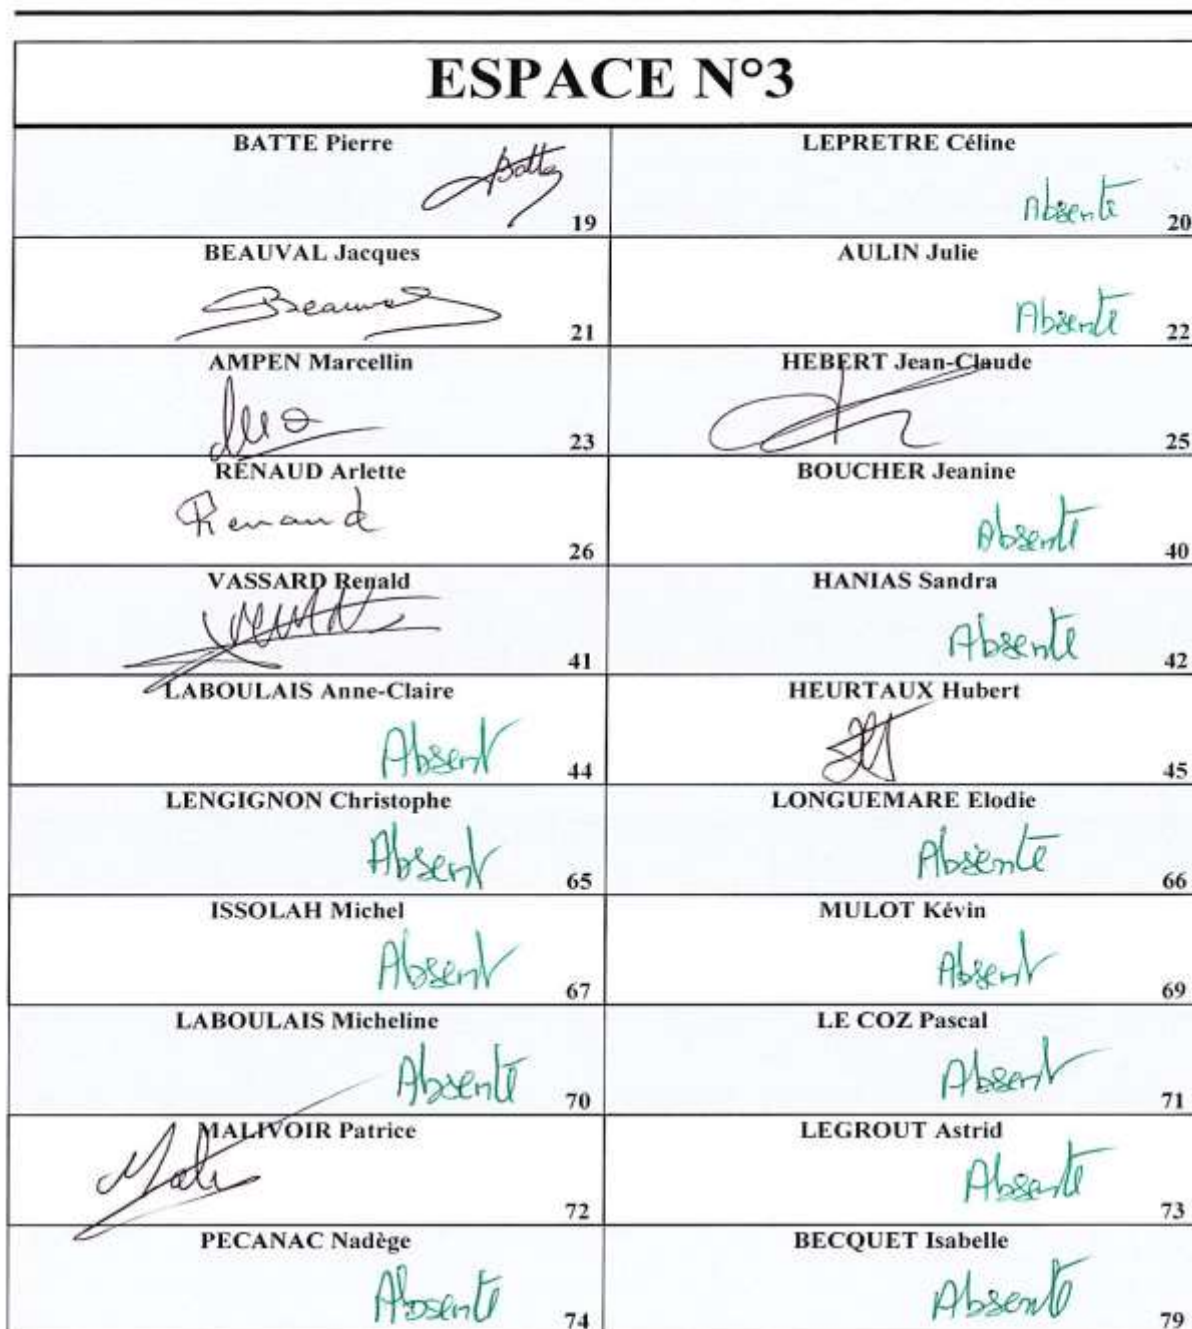 ESPACE N°3
BATTE Pierre
Batte
19
LEPRETRE Céline
Absente
20
BEAUVAL Jacques
Beauval
21
AULIN Julie
Absente
22
AMPEN Marcellin
23
HEBERT Jean-Claude
25
RENAUD Arlette
Renaud
26
BOUCHER Jeanine
Absente
40
VASSARD Renald
41
HANIAS Sandra
Absente
42
LABOULAIS Anne-Claire
Absent
44
HEURTAUX Hubert
45
LENGIGNON Christophe
Absent
65
LONGUEMARE Elodie
Absente
66
ISSOLAH Michel
Absent
67
MULOT Kévin
Absent
69
LABOULAIS Micheline
Absente
70
LE COZ Pascal
Absent
71
MALIVOIR Patrice
72
LEGROUT Astrid
Absente
73
PECANAC Nadège
Absente
74
BECQUET Isabelle
Absente
79